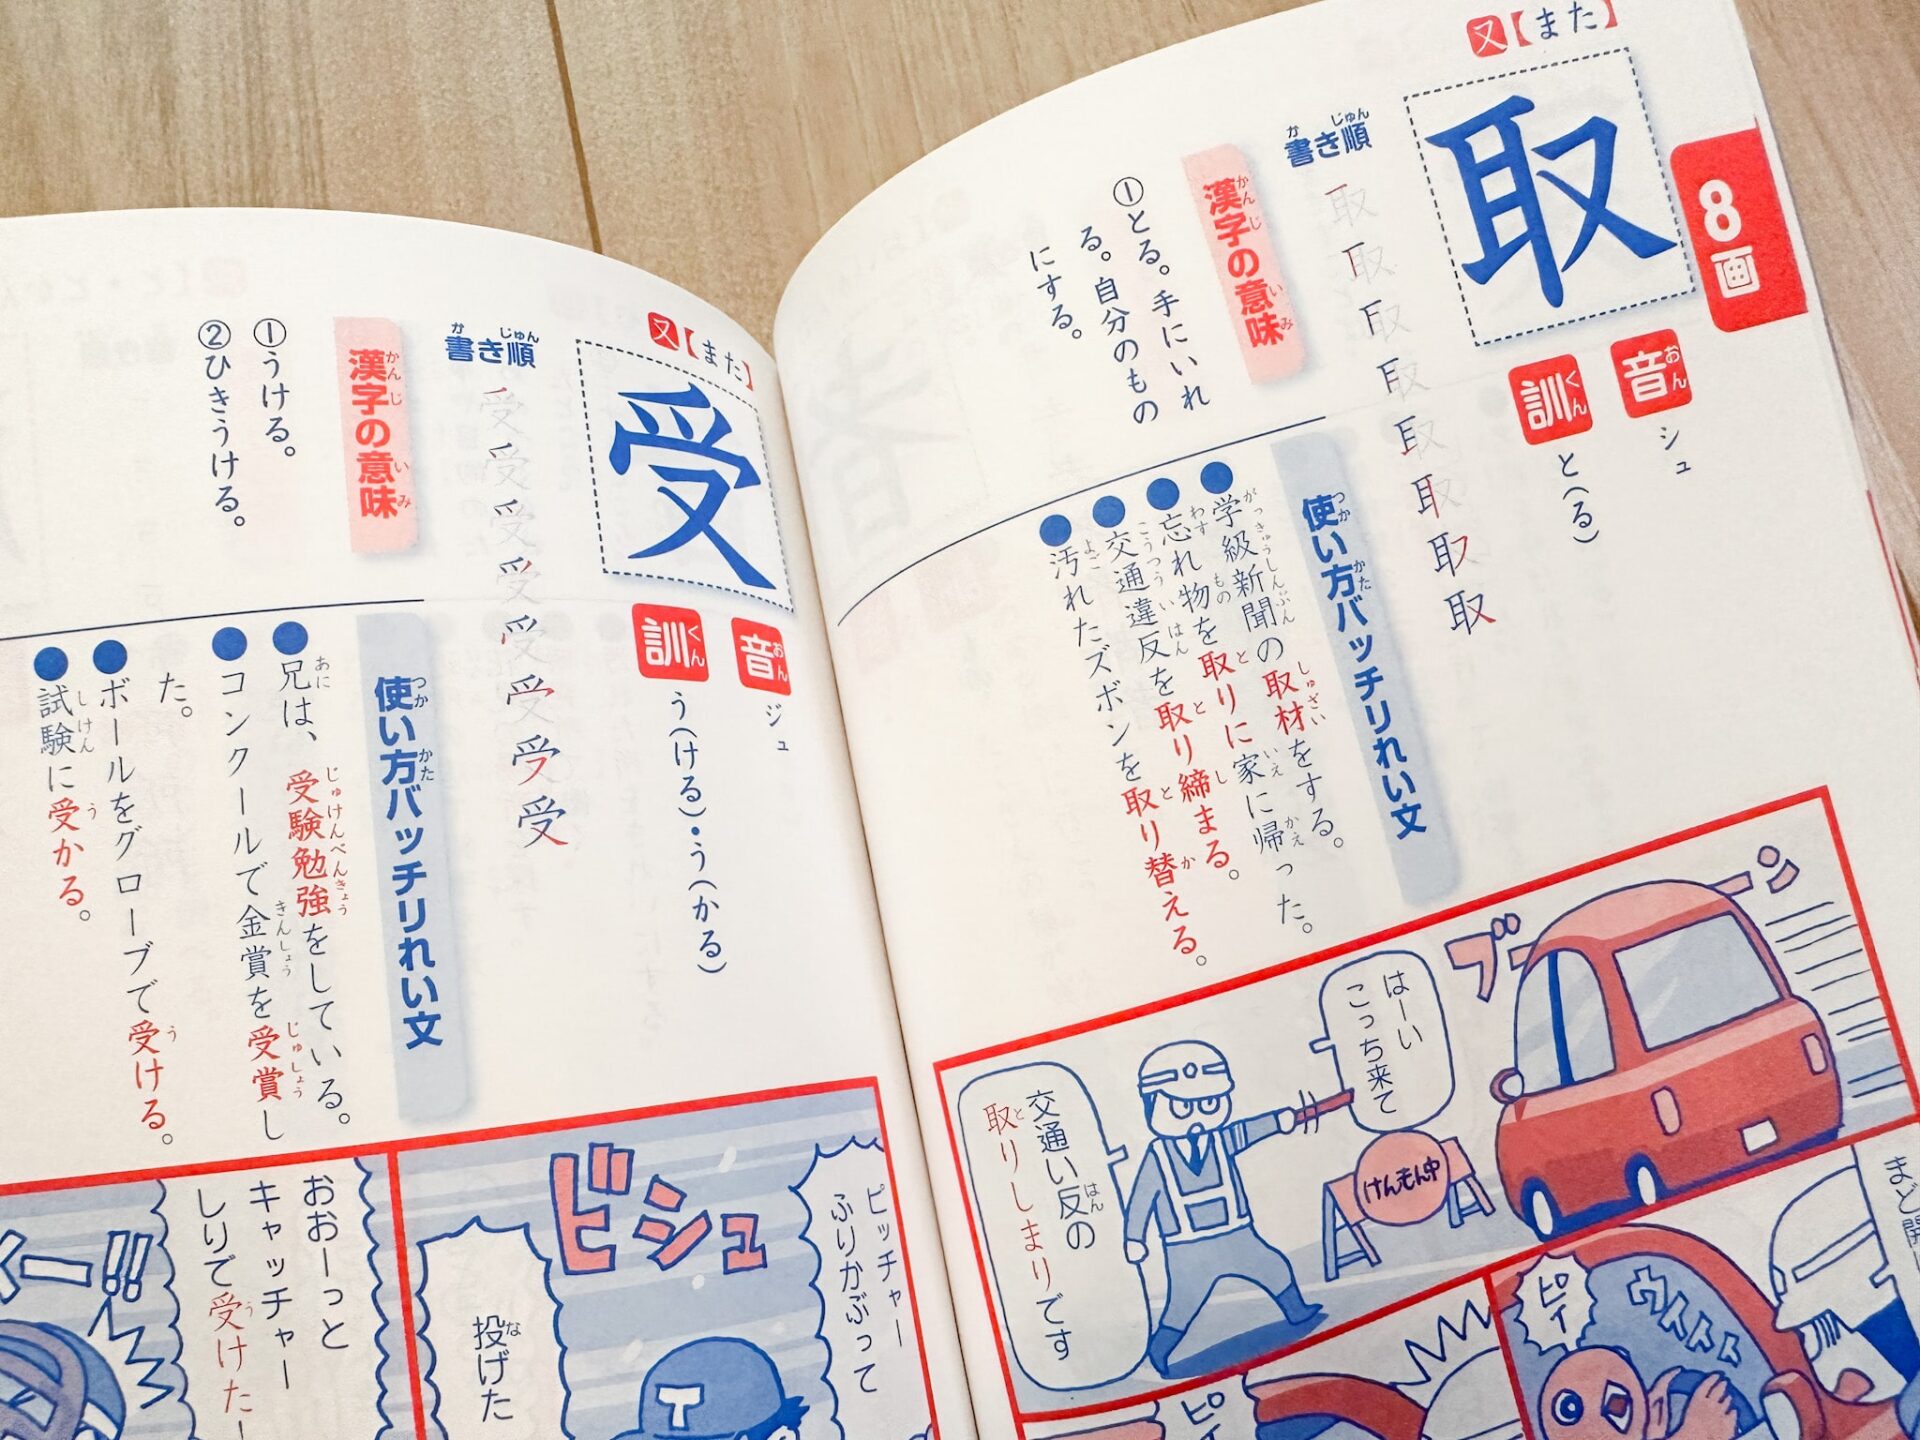 又【また】
取
8画
音 シュ
訓 と(る)
書き順
取取取取取取取取
漢字の意味
①とる。手にいれ
る。自分のもの
にする。
使い方バッチリれい文
●学級新聞の取材をする。
●忘れ物を取りに家に帰った。
●交通違反を取り締まる。
●汚れたズボンを取り替える。
ブーン
はーい
こっち来て
けんもん中
交通い反の
取りしまりです
まど開
ピィ
ウストト
ピィ
又【また】
受
音 ジュ
訓 う(ける)・う(かる)
書き順
受受受受受受受受
漢字の意味
①うける。
②ひきうける。
使い方バッチリれい文
●兄は、受験勉強をしている。
●コンクールで金賞を受賞し
た。
●ボールをグローブで受ける。
●試験に受かる。
ピッチャー
ふりかぶって
ビシュ
投げた
おおーっと
キャッチャー
しりで受けたー
ー!!